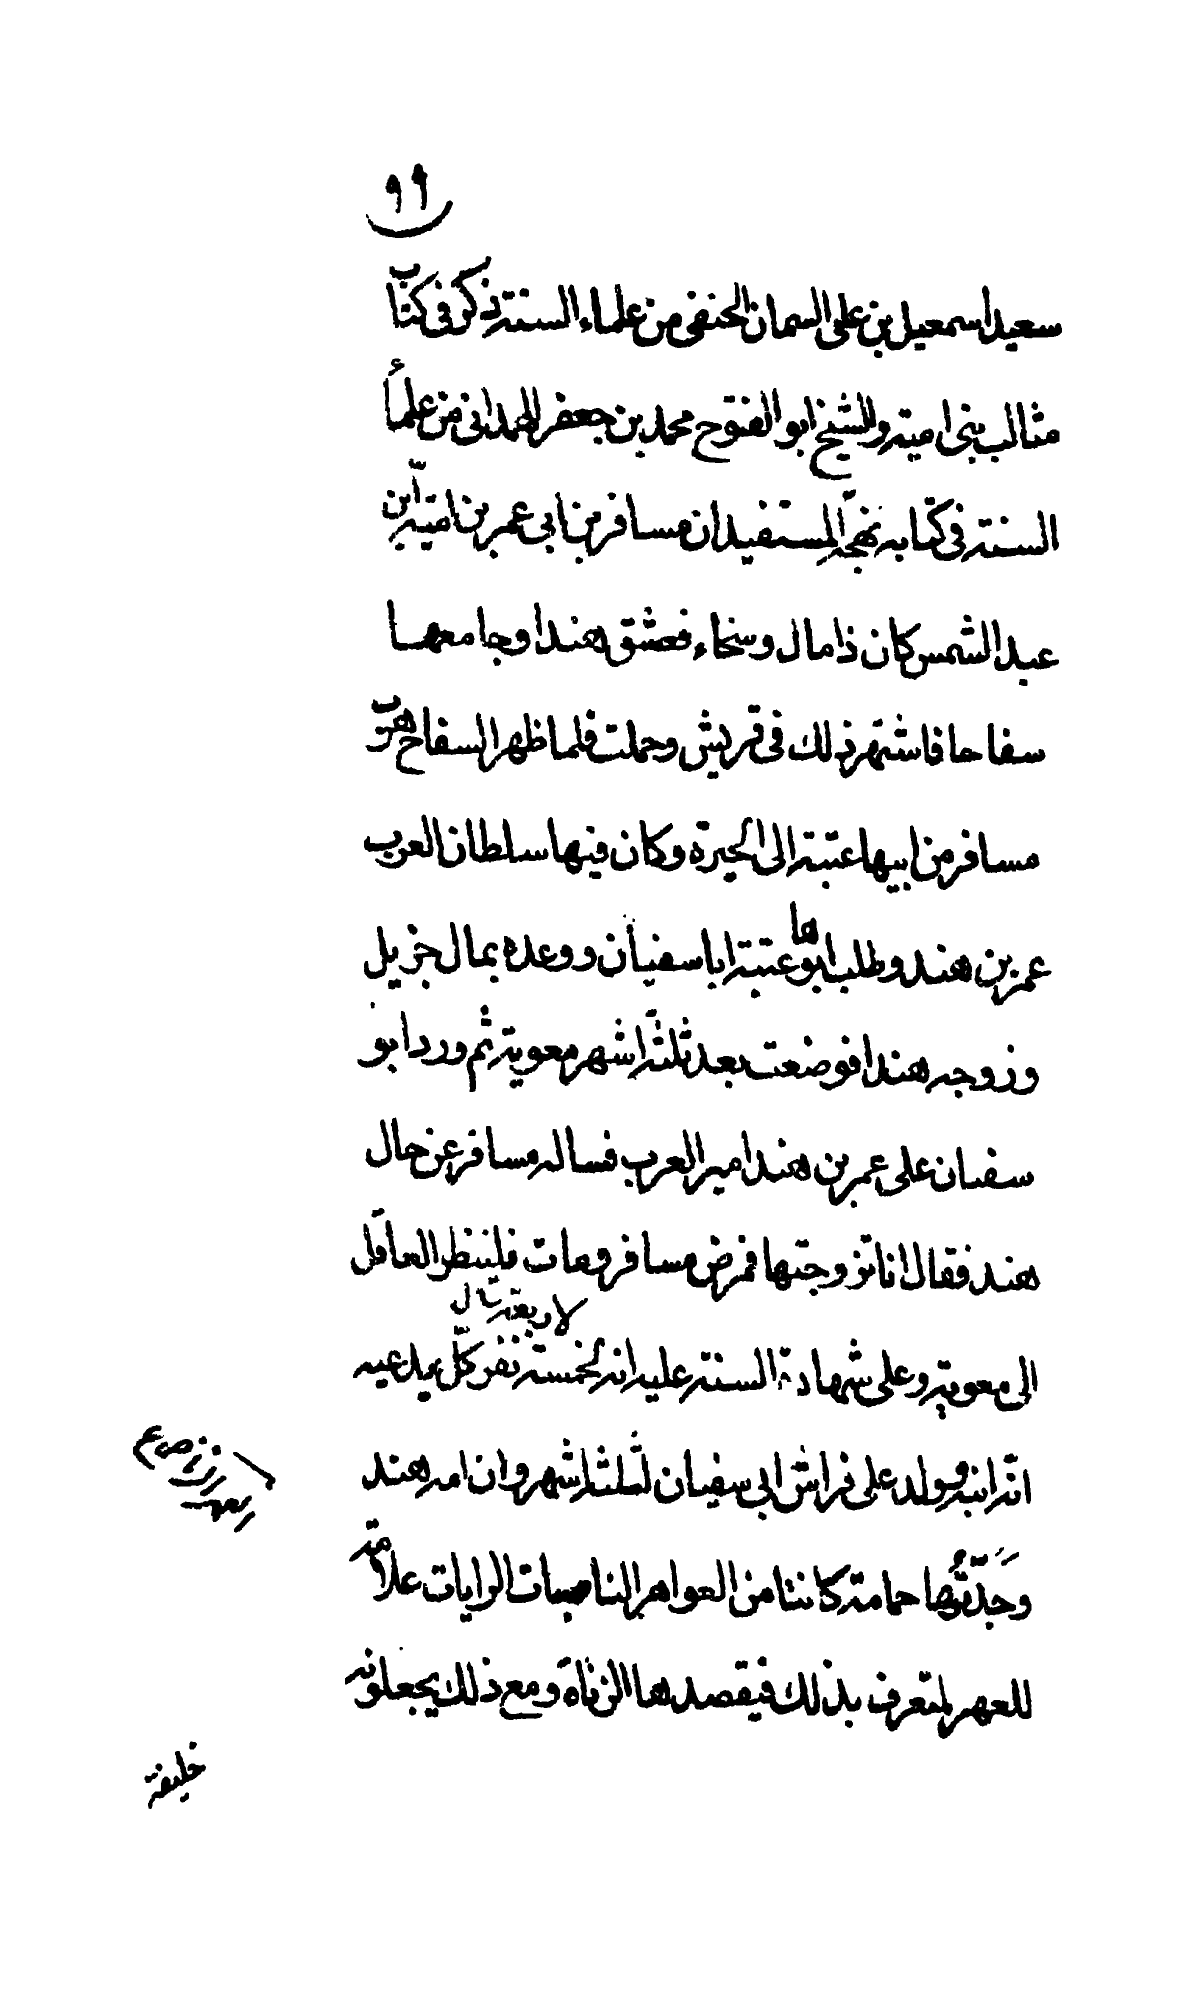 ٩٩
سعيد اسمعيل بن على السمان الحنفى من علماء السنة ذكر فى كتاب
مثالب بنى امية والشيخ ابو الفتوح محمد بن جعفر الهمدانى من علمأ
السنة فى كتابه بهجة المستفيد ان مسافر بن ابى عمر بن امية بن
عبد الشمس كان ذا مال وسخاء فعشق هندا وجامعها
سفاحا فاشتهر ذلك فى قريش وحملت فلما ظهر السفاح هرب
مسافر من ابيها عتبة الى الحيرة وكان فيها سلطان العرب
عمر بن هند وطلب ابوها عتبة ابا سفيان ووعده بمال جزيل
وزوجه هندا فوضعت بعد ثلثة اشهر معوية ثم ورد ابو
سفيان على عمر بن هند امير العرب فساله مسافر عن حال
هند فقال انا تزوجتها فمرض مسافر ومات فلينظر العاقل
الى معوية وعلى شهادة السنة عليه انه لخمسة نفر كل يدعيه
لاربعة
انه ابنه وولد على فراش ابى سفيان لثلثة اشهر وان امه هند
العهر الزنا ص ع
وجدتها حمامة كانتا من العواهر الناصبات الرايات علامة
للعهر لتعرف بذلك فيقصدها الزناة ومع ذلك يجعلونه
خليفة